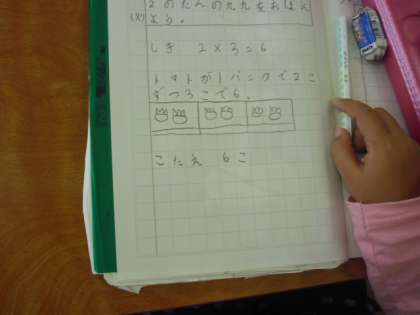 (火) 2のだんの九九をおぼえ
よう。
しき 2×3=6
トマトが1パックで2こ
ずつ3こで6。
こたえ 6こ